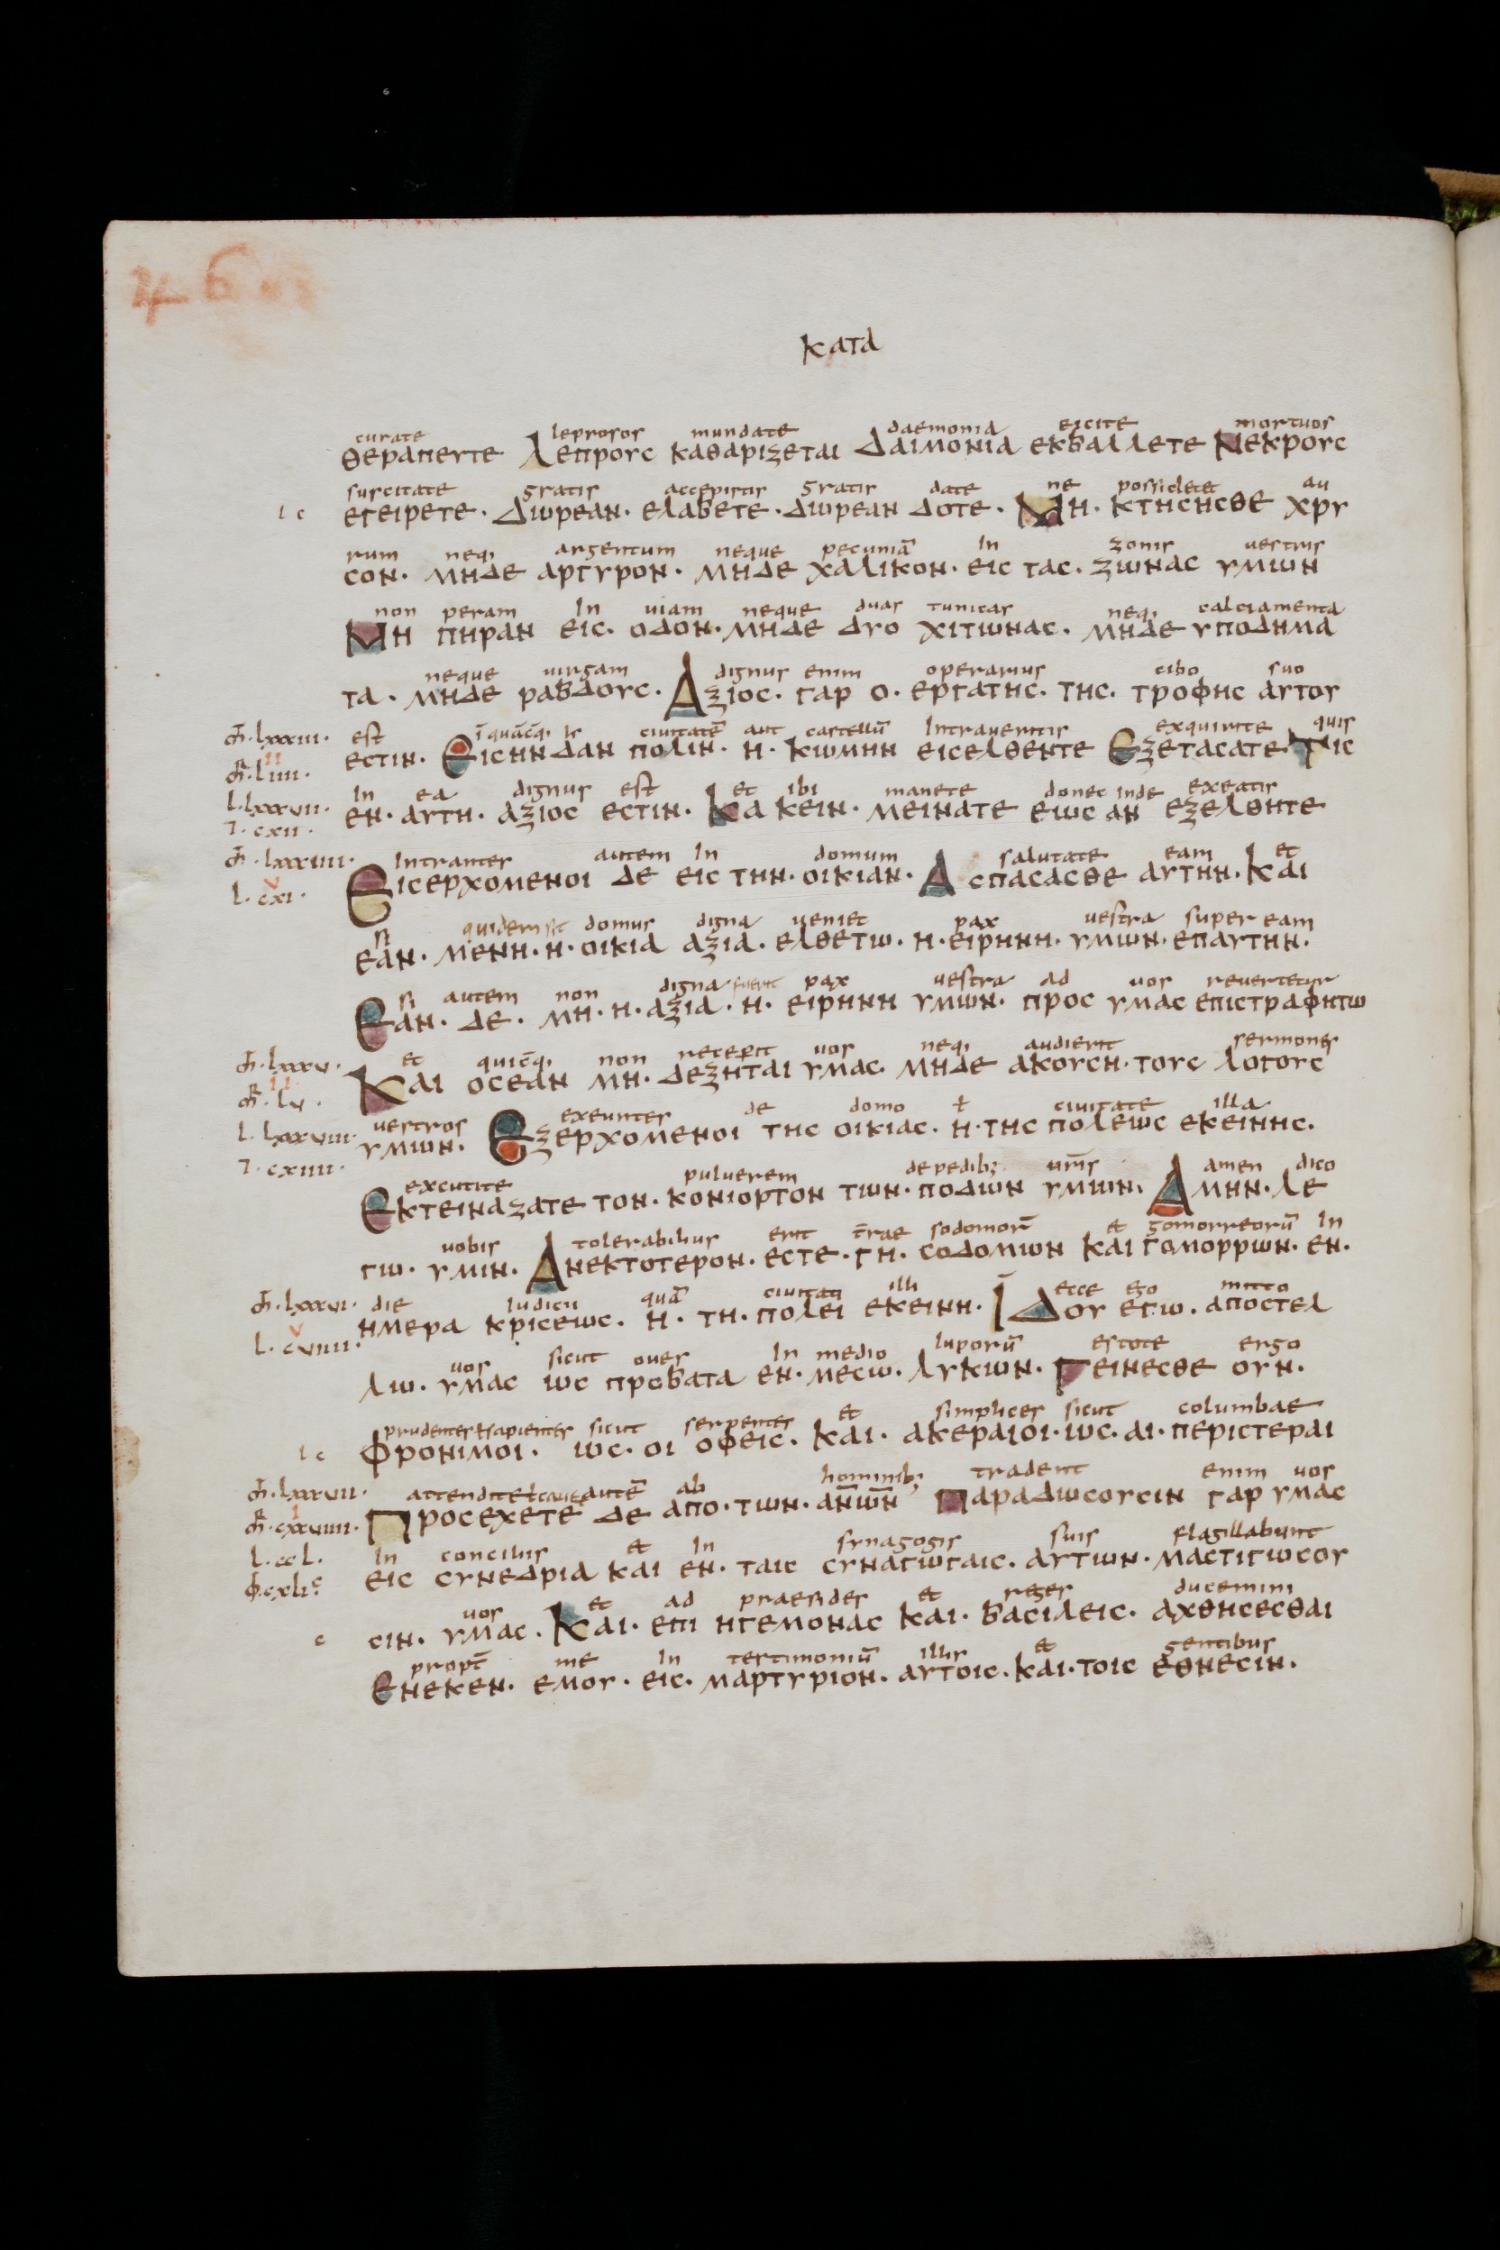 46
κατα
curate leprosos mundate daemonia eicite mortuos
θεραπευτε λεπρουc καθαριζεται Δαιμονια εκβαλλετε Νεκρουc
suscitate gratis accepistis gratis date ne possidete au
ι c εγειρετε· Δωρεαν· ελαβετε· Δωρεαν Δοτε· Μη· κτηcηcθε χρυ
rum neq; argentum neque pecuniā In zonis vestris
cον· μηδε αργυρον· μηδε χαλικον· ειc ταc· ζωναc υμων
non peram In uiam neque duas tunicas neq; calciamenta
Μη πηραν ειc· οδον· μηδε δυο χιτωναc· μηδε υποδημα
neque uirgam dignus enim operarius cibo suo
τα· μηδε ραβδουc· Αξιοc· γαρ ο· εργατηc· τηc· τροφηc αυτου
est ciuitatē aut castellū Intraueritis exquirite quis
εcτιν· Ειcηνδαν πολιν· η· κωμην ειcελθεντε Εξεταcατε Τιc
In ea dignus est et ibi manete donec inde exeatis
εν· αυτη· αξιοc εcτιν· Κα κειν· μεινατε εωc αν εξελθητε
Intrantes autem In domum salutate eam et
Ειcερχομενοι δε ειc την· οικιαν· Αcπαcαcθε αυτην· Και
si quidem sit domus digna veniet pax vestra super eam
εαν· μενη· η· οικια αξια· ελθετω· η· ειρηνη· υμων· επαυτην·
si autem non digna fuerit pax vestra ad uos reuertetur
Εαν· δε· μη· η· αξια· η· ειρηνη υμων· προc υμαc επιcτραφητω
et quicq; non receperit uos neq; audierit sermones
Και οcεαν μη· δεξηται υμαc· μηδε ακουcη· τουc λογουc
vestros exeuntes de domo ł ciuitate illa
υμων· Εξερχομενοι τηc οικιαc· η· τηc πολεωc εκεινηc·
excutite puluerem de pedib; uris amen dico
Εκτειναξατε τον· κονιορτον των· ποδων υμων· Αμην· λε
uobis tolerabilius erit t̄rae sodomorū et gomorreorū In
γω· υμιν· Ανεκτοτερον· εcτε· γη· cοδομων και γομορρων· εν·
die Iudicii quā ciuitati illi ecce ego mitto
ημερα κριcεωc· η· τη· πολει εκεινη· Ιδου εγω· αποcτελ
uos sicut oues In medio luporū estote ergo
λω· υμαc ωc προβατα εν· μεcω· λυκων· Γεινεcθε ουν·
prudentes ł sapientes sicut serpentes et simplices sicut columbae
ι c φρονιμοι· ωc· οι οφειc· και· ακεραιοι· ωc· αι· περιcτεραι
ab hominib; tradent enim vos
Προcεχετε δε απο· των· αν̄ων̄ Παραδωcουcιν γαρ υμαc
In conciliis et In synagogis suis flagillabunt
ειc cυνεδρια και εν· ταιc cυναγωγαιc· αυτων· μαcτιγωcου
uos et ad praesides et reges ducemini
c cιν· υμαc· Και· επι ηγεμοναc και· βαcιλειc· αχθηcεcθαι
propt̄ me In testimoniū illis et gentibus
Ενεκεν· εμου· ειc· μαρτυριον· αυτοιc· και· τοιc εθνεcιν·